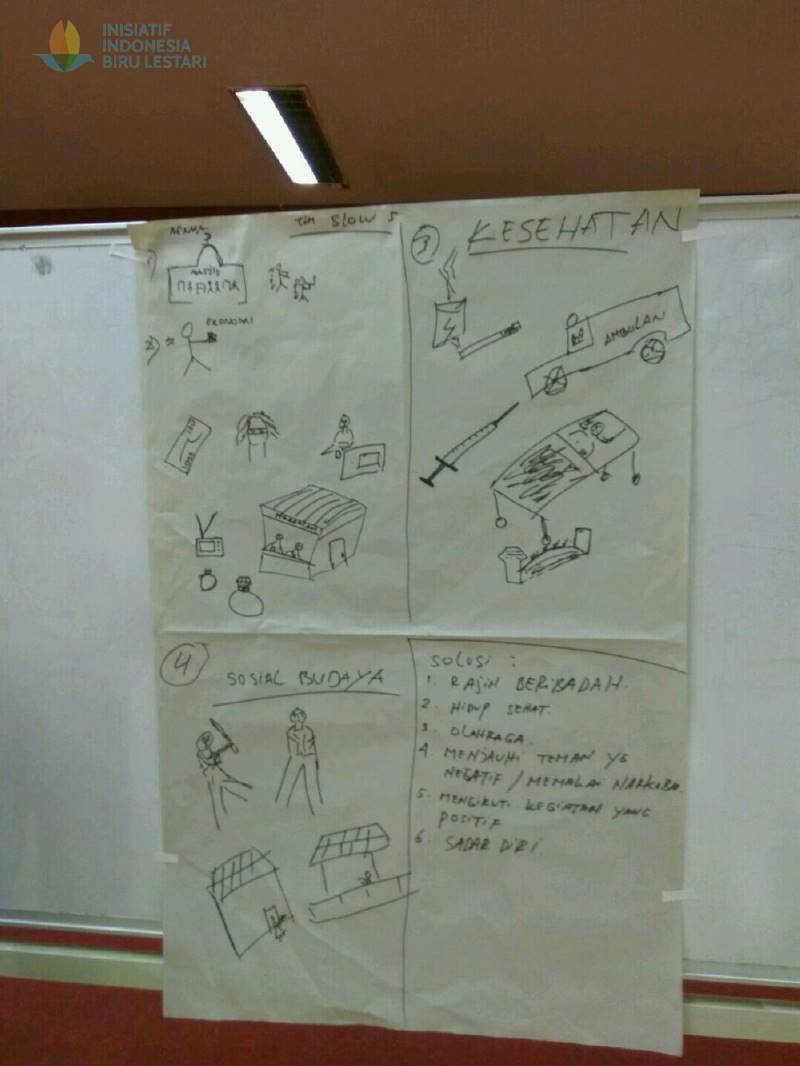 INISIATIF
INDONESIA
BIRU LESTARI
TIM SLOW 5
AGAMA
1)
MASJID
2)
EKONOMI
3 KESEHATAN
AMBULAN
4 SOSIAL BUDAYA
SOLUSI :
1. RAJIN BERIBADAH.
2. HIDUP SEHAT.
3. OLAHRAGA.
4. MENJAUHI TEMAN YG
NEGATIF / MEMAKAI NARKOBA
5. MENGIKUTI KEGIATAN YANG
POSITIF
6. SADAR DIRI.